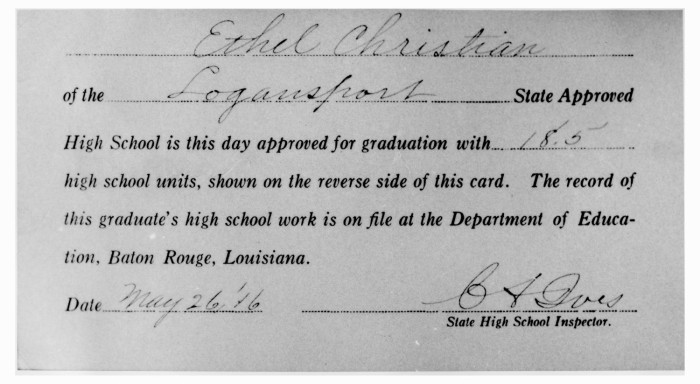 Ethel Christian
of the Logansport State Approved
High School is this day approved for graduation with 18.5
high school units, shown on the reverse side of this card. The record of
this graduate's high school work is on file at the Department of Educa-
tion, Baton Rouge, Louisiana.
Date May 26, '16 C A Ives
State High School Inspector.